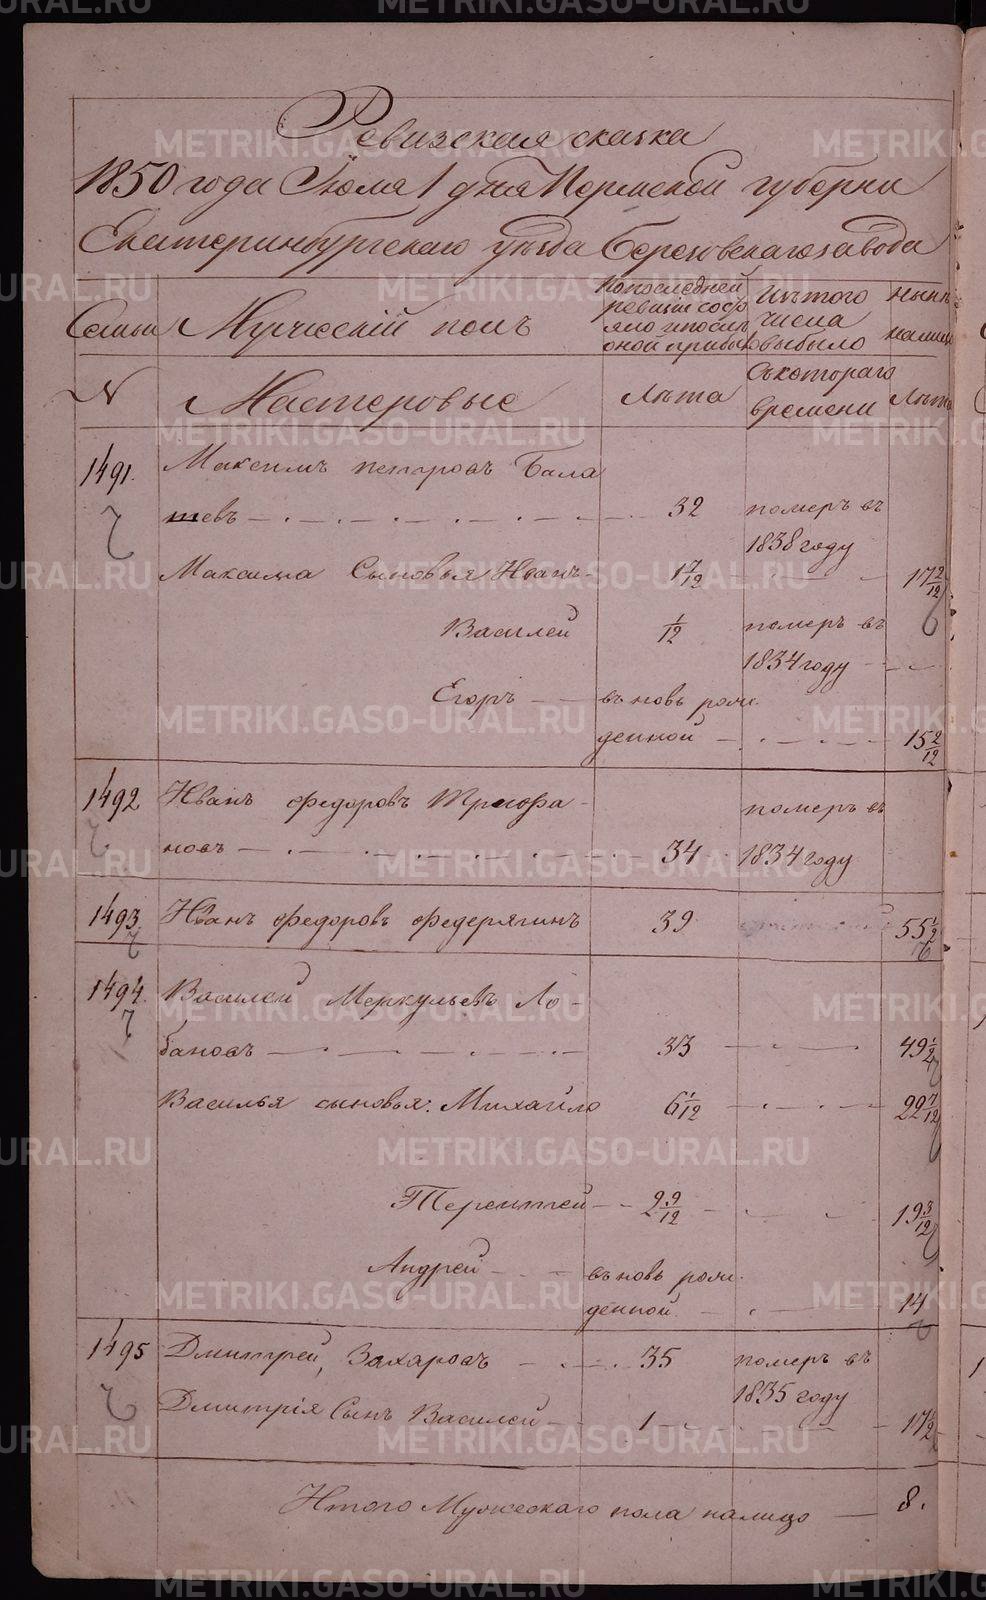 Ревизская сказка
1850 года Июля 1 дня Пермской губерни
Екатеринбургскаго уѣзда Березовскагозавода
Семьи Мужескій полъ По последней ревизіи состояло и после оной прибыло Изъ того числа выбыло Нынѣ налицо
№ Мастеровые Лѣта Съкотораго времени Лѣта
1491. Максимъ петровъ Бала
шевъ 32 померъ въ
1838 году
Максима Сыновья Иванъ 1 7/12 17 2/12
Василей 1/12 померъ въ
1834 году
Егоръ въновь рож
денной 15 2/12
1492 Иванъ федоровъ Трифа- померъ въ
новъ 34 1834 году
1493 Иванъ федоровъ федерягинъ 39 55 1/2
1494. Василей Меркульевъ Ло-
бановъ 33 49 1/2
Василья сыновья: Михайло 6 1/12 22 7/12
Терентей 2 9/12 19 3/12
Андрей въновь рож
денной 14
1495 Дмитрей Захаровъ 35 померъ въ
1835 году
Дмитрія Сынъ Василей 1 17 1/2
Итого Мужескаго пола налицо 8.
METRIKI.GASO-URAL.RU